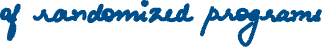 of randomized programs